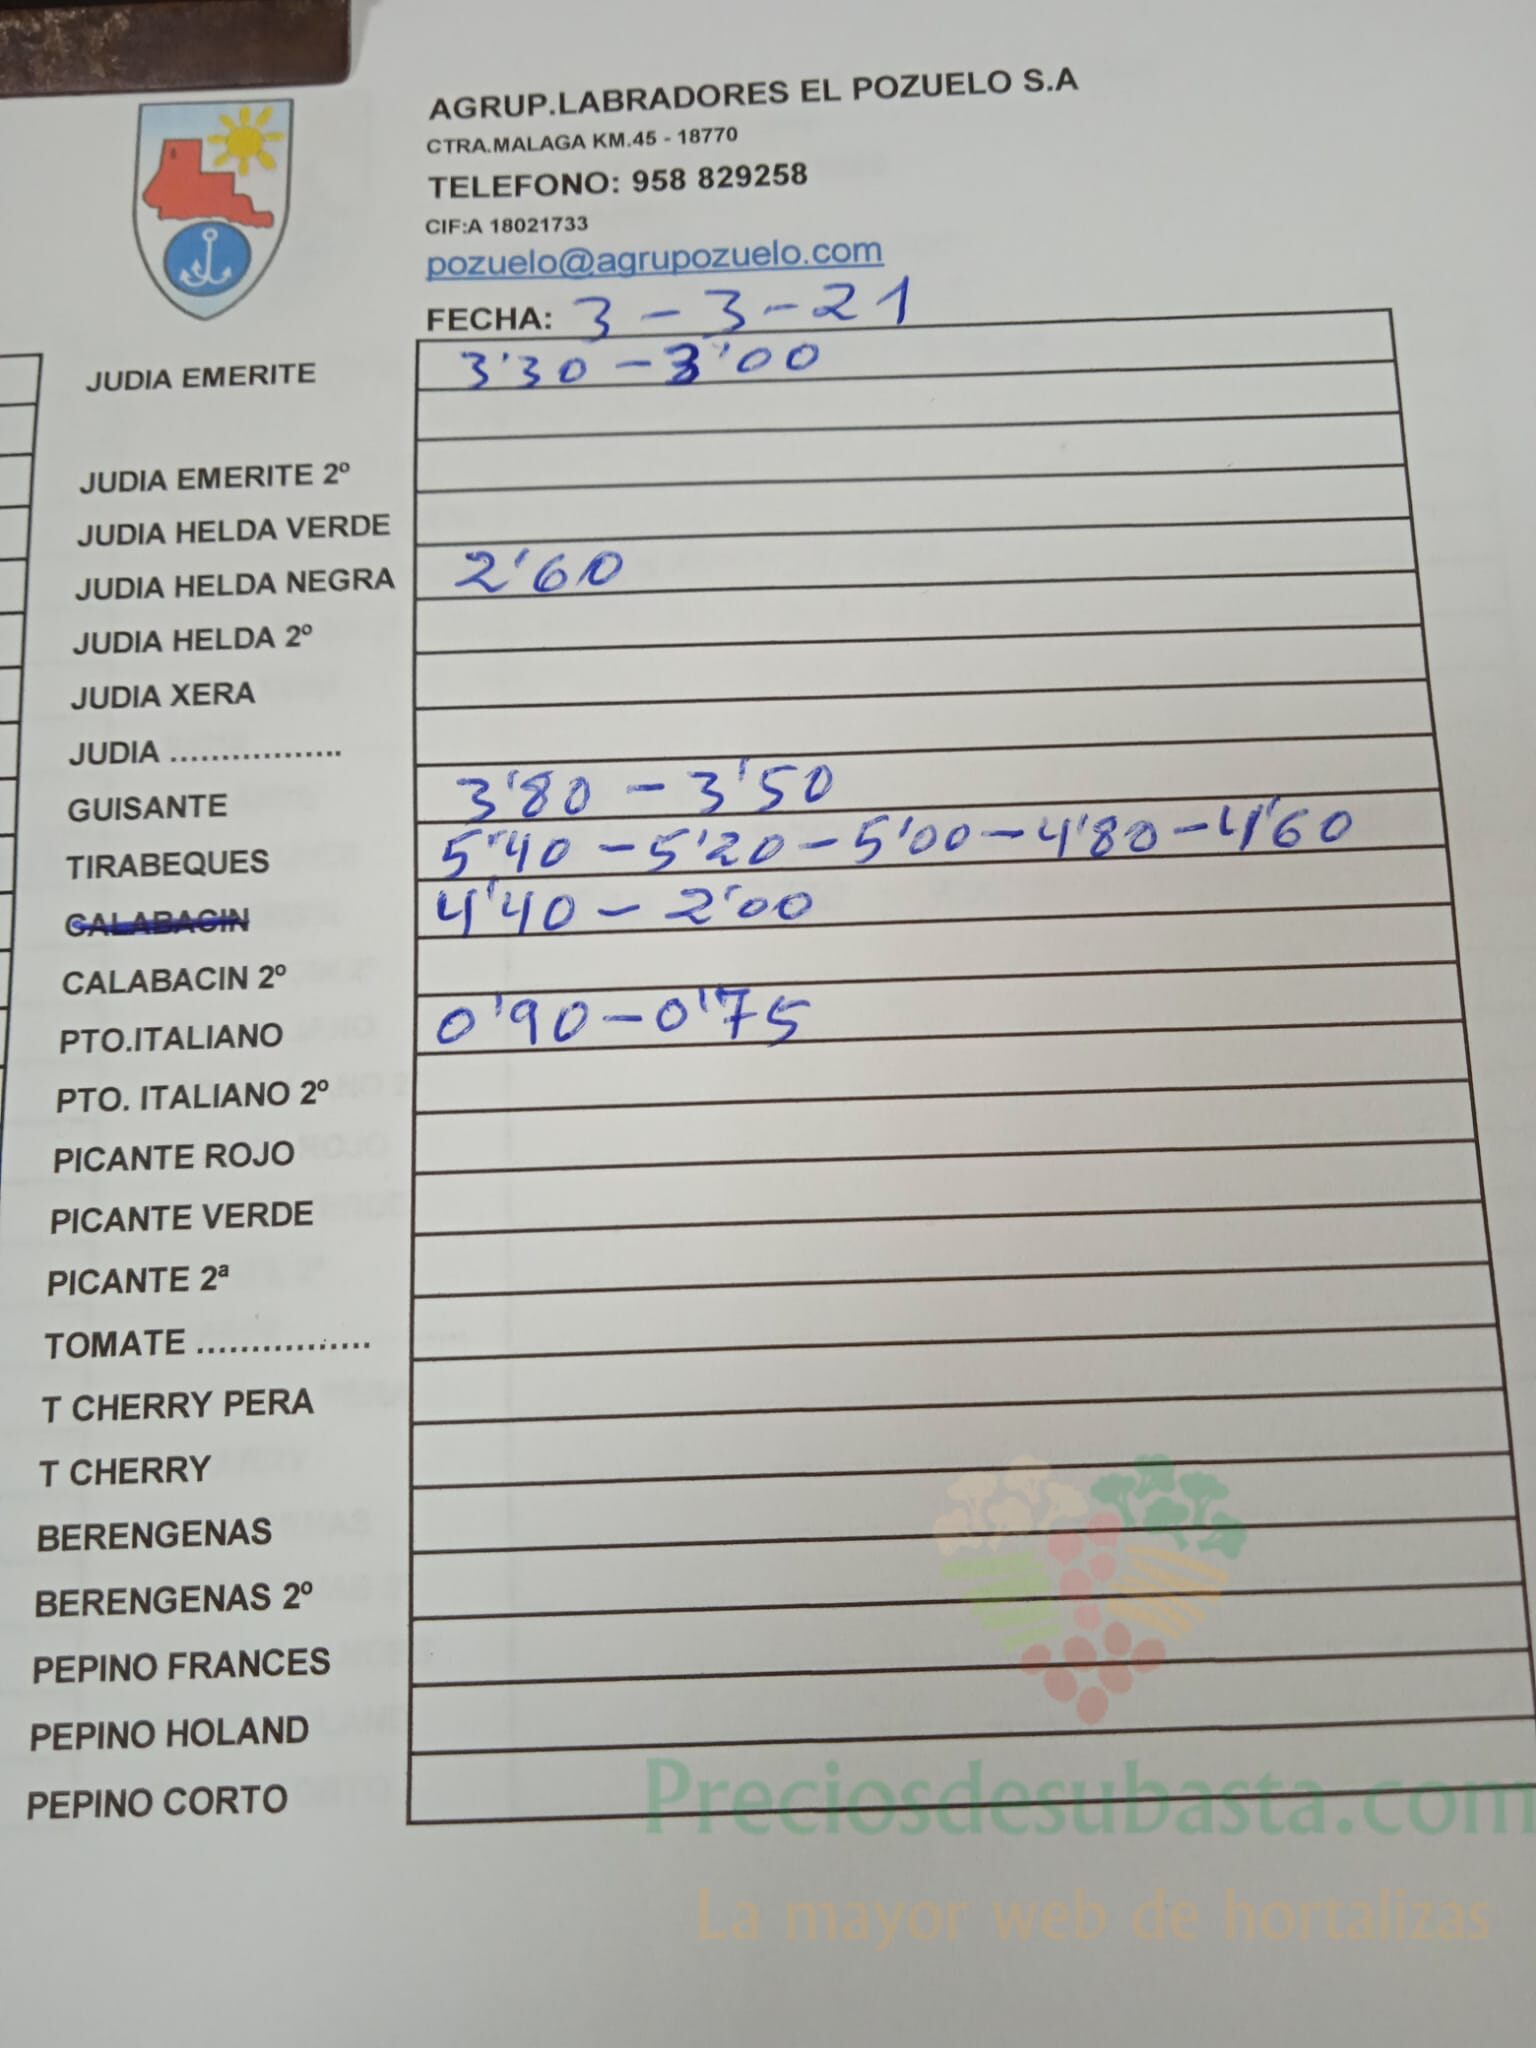 AGRUP.LABRADORES EL POZUELO S.A
CTRA.MALAGA KM.45 - 18770
TELEFONO: 958 829258
CIF:A 18021733
pozuelo@agrupozuelo.com
FECHA: 3-3-21
JUDIA EMERITE 3'30 - 3'00
JUDIA EMERITE 2º
JUDIA HELDA VERDE
JUDIA HELDA NEGRA 2'60
JUDIA HELDA 2º
JUDIA XERA
JUDIA .................
GUISANTE 3'80 - 3'50
TIRABEQUES 5'40 - 5'20 - 5'00 - 4'80 - 4'60
CALABACIN 4'40 - 2'00
CALABACIN 2º
PTO.ITALIANO 0'90 - 0'75
PTO. ITALIANO 2º
PICANTE ROJO
PICANTE VERDE
PICANTE 2ª
TOMATE ................
T CHERRY PERA
T CHERRY
BERENGENAS
BERENGENAS 2º
PEPINO FRANCES
PEPINO HOLAND
PEPINO CORTO
Preciosdesubasta.com
La mayor web de hortalizas